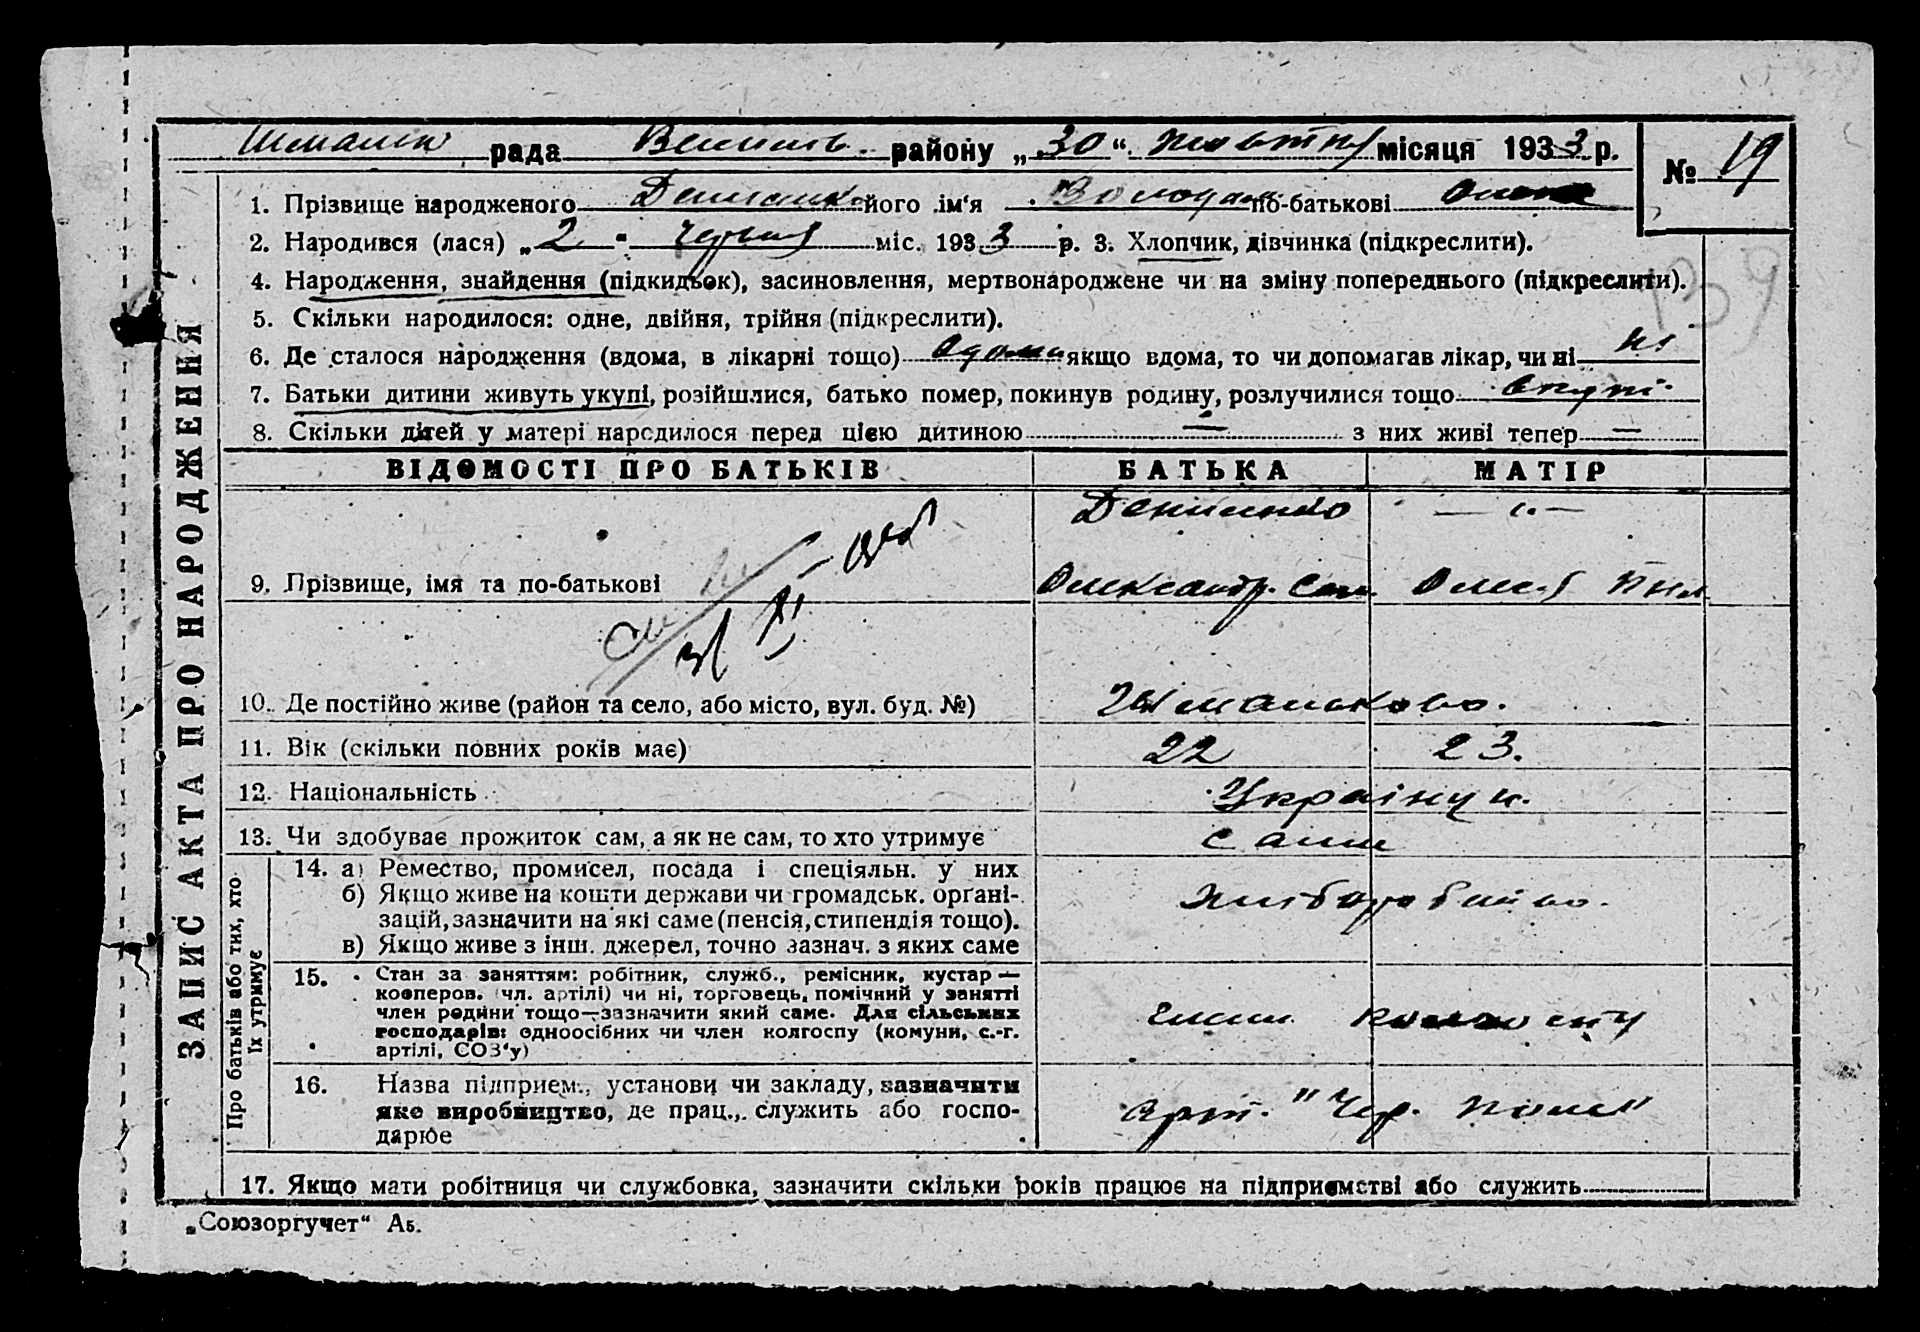 рада районы „30“ жовтня місяця 1933 р.
№ 19
ЗАПИС АКТА ПРО НАРОДЖЕННЯ
1. Прізвище народженого Денисенко його ім'я Володим. по-батькові
2. Народився (лася) „2“ червня міс. 1933 р. 3. Хлопчик, дівчинка (підкреслити).
4. Народження, знайдення (підкидьок), засиновлення, мертвонароджене чи на зміну попереднього (підкреслити).
139
5. Скільки народилося: одне, двійня, трійня (підкреслити).
6. Де сталося народження (вдома, в лікарні тощо) вдома якщо вдома, то чи допомагав лікар, чи ні ні
7. Батьки дитини живуть укупі, розійшлися, батько помер, покинув родину, розлучилися тощо вкупі
8. Скільки дітей у матері народилося перед цією дитиною — з них живі тепер —
ВІДОМОСТІ ПРО БАТЬКІВ БАТЬКА МАТІР
Денисенко — „ —
9. Прізвище, імя та по-батькові Олександр
10. Де постійно живе (район та село, або місто, вул. буд. №) Шмальково.
11. Вік (скільки повних років має) 22 23.
12. Національність Українці
13. Чи здобуває прожиток сам, а як не сам, то хто утримує сами
Про батьків або тих, хто їх утримує
14. а) Ремество, промисел, посада і спеціяльн. у них
б) Якщо живе на кошти держави чи громадськ. органі-
зацій, зазначити на які саме (пенсія, стипендія тощо).
в) Якщо живе з інш. джерел, точно зазнач. з яких саме
15. Стан за заняттям: робітник, служб., ремісник, кустар —
кооперов. (чл. артілі) чи ні, торговець, помічний у занятті
член родини тощо—зазначити який саме. Для сільських
господарів: одноосібних чи член колгоспу (комуни, с.-г.
артілі, СОЗ'у)
члени колгоспу
16. Назва підприєм., установи чи закладу, зазначити
яке виробництво, де прац., служить або госпо-
дарює
арт. "Чер. поле"
17. Якщо мати робітниця чи службовка, зазначити скільки років працює на підприємстві або служить
„Союзоргучет“ Аб.